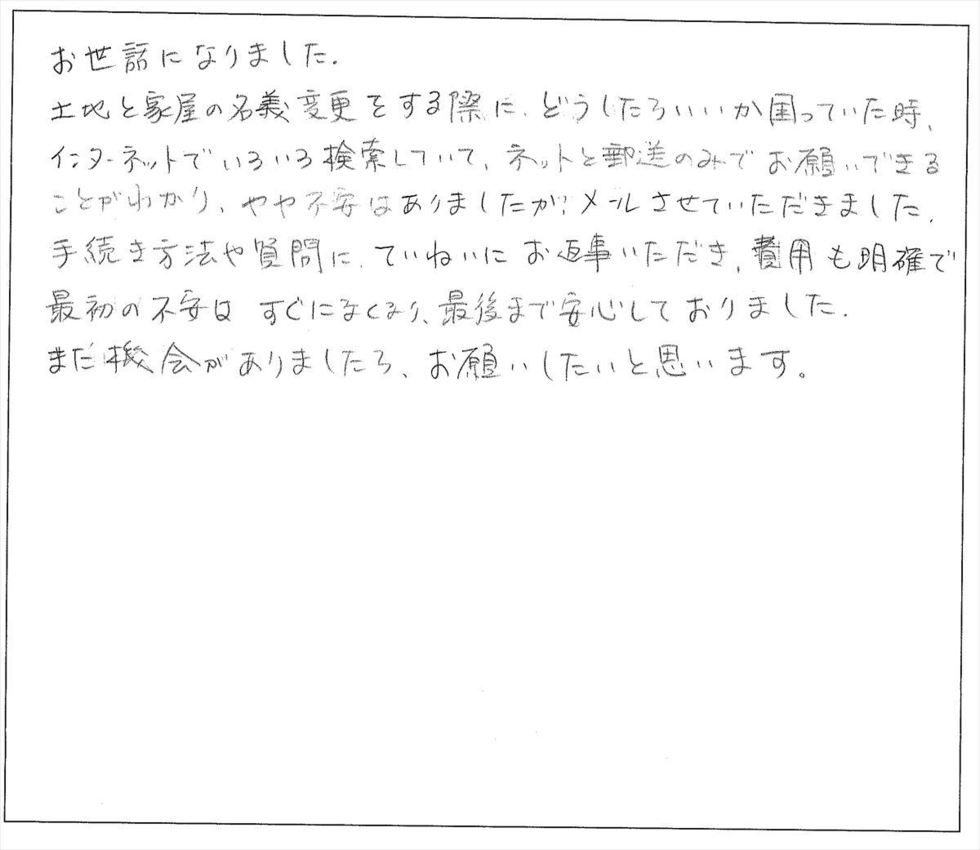 お世話になりました.
土地と家屋の名義変更をする際に、どうしたらいいか困っていた時、
インターネットでいろいろ検索していて、ネットと郵送のみでお願いできる
ことがわかり、やや不安はありましたが、メールさせていただきました.
手続き方法や質問に、ていねいにお返事いただき、費用も明確で
最初の不安は すぐになくなり、最後まで安心しておりました.
また機会がありましたら、お願いしたいと思います。